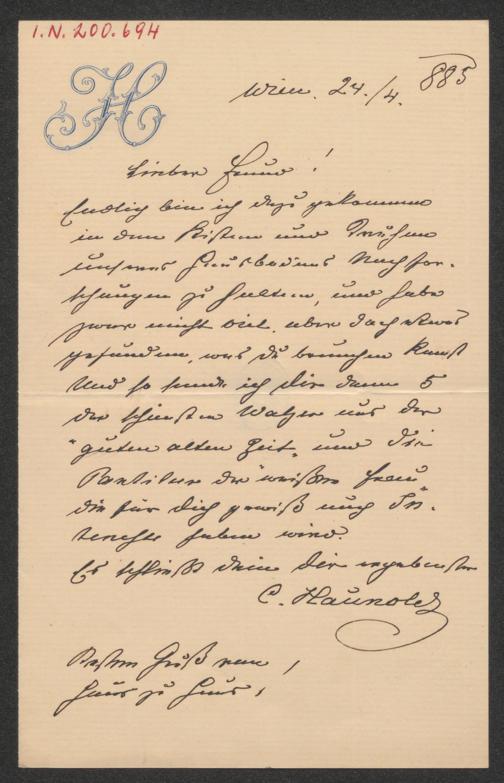 I.N. 200.694
H
Wien. 24./4. 885
Lieber Freund!
Endlich bin ich dazu gekommen
in den Kisten und Truhen
unseres Hausbodens Nachfor-
schungen zu halten, und habe
zwar nicht viel, aber doch etwas
gefunden, was du brauchen kannst
Und so sende ich dir denn 5
der schönsten Walzer aus der
"guten alten Zeit" und die
Partitur der "weißen Frau"
die für dich gewiß auch In-
teresse haben wird.
Es schließt dein dir ergebenster
C. Haunold
Besten Gruß von
Haus zu Haus!